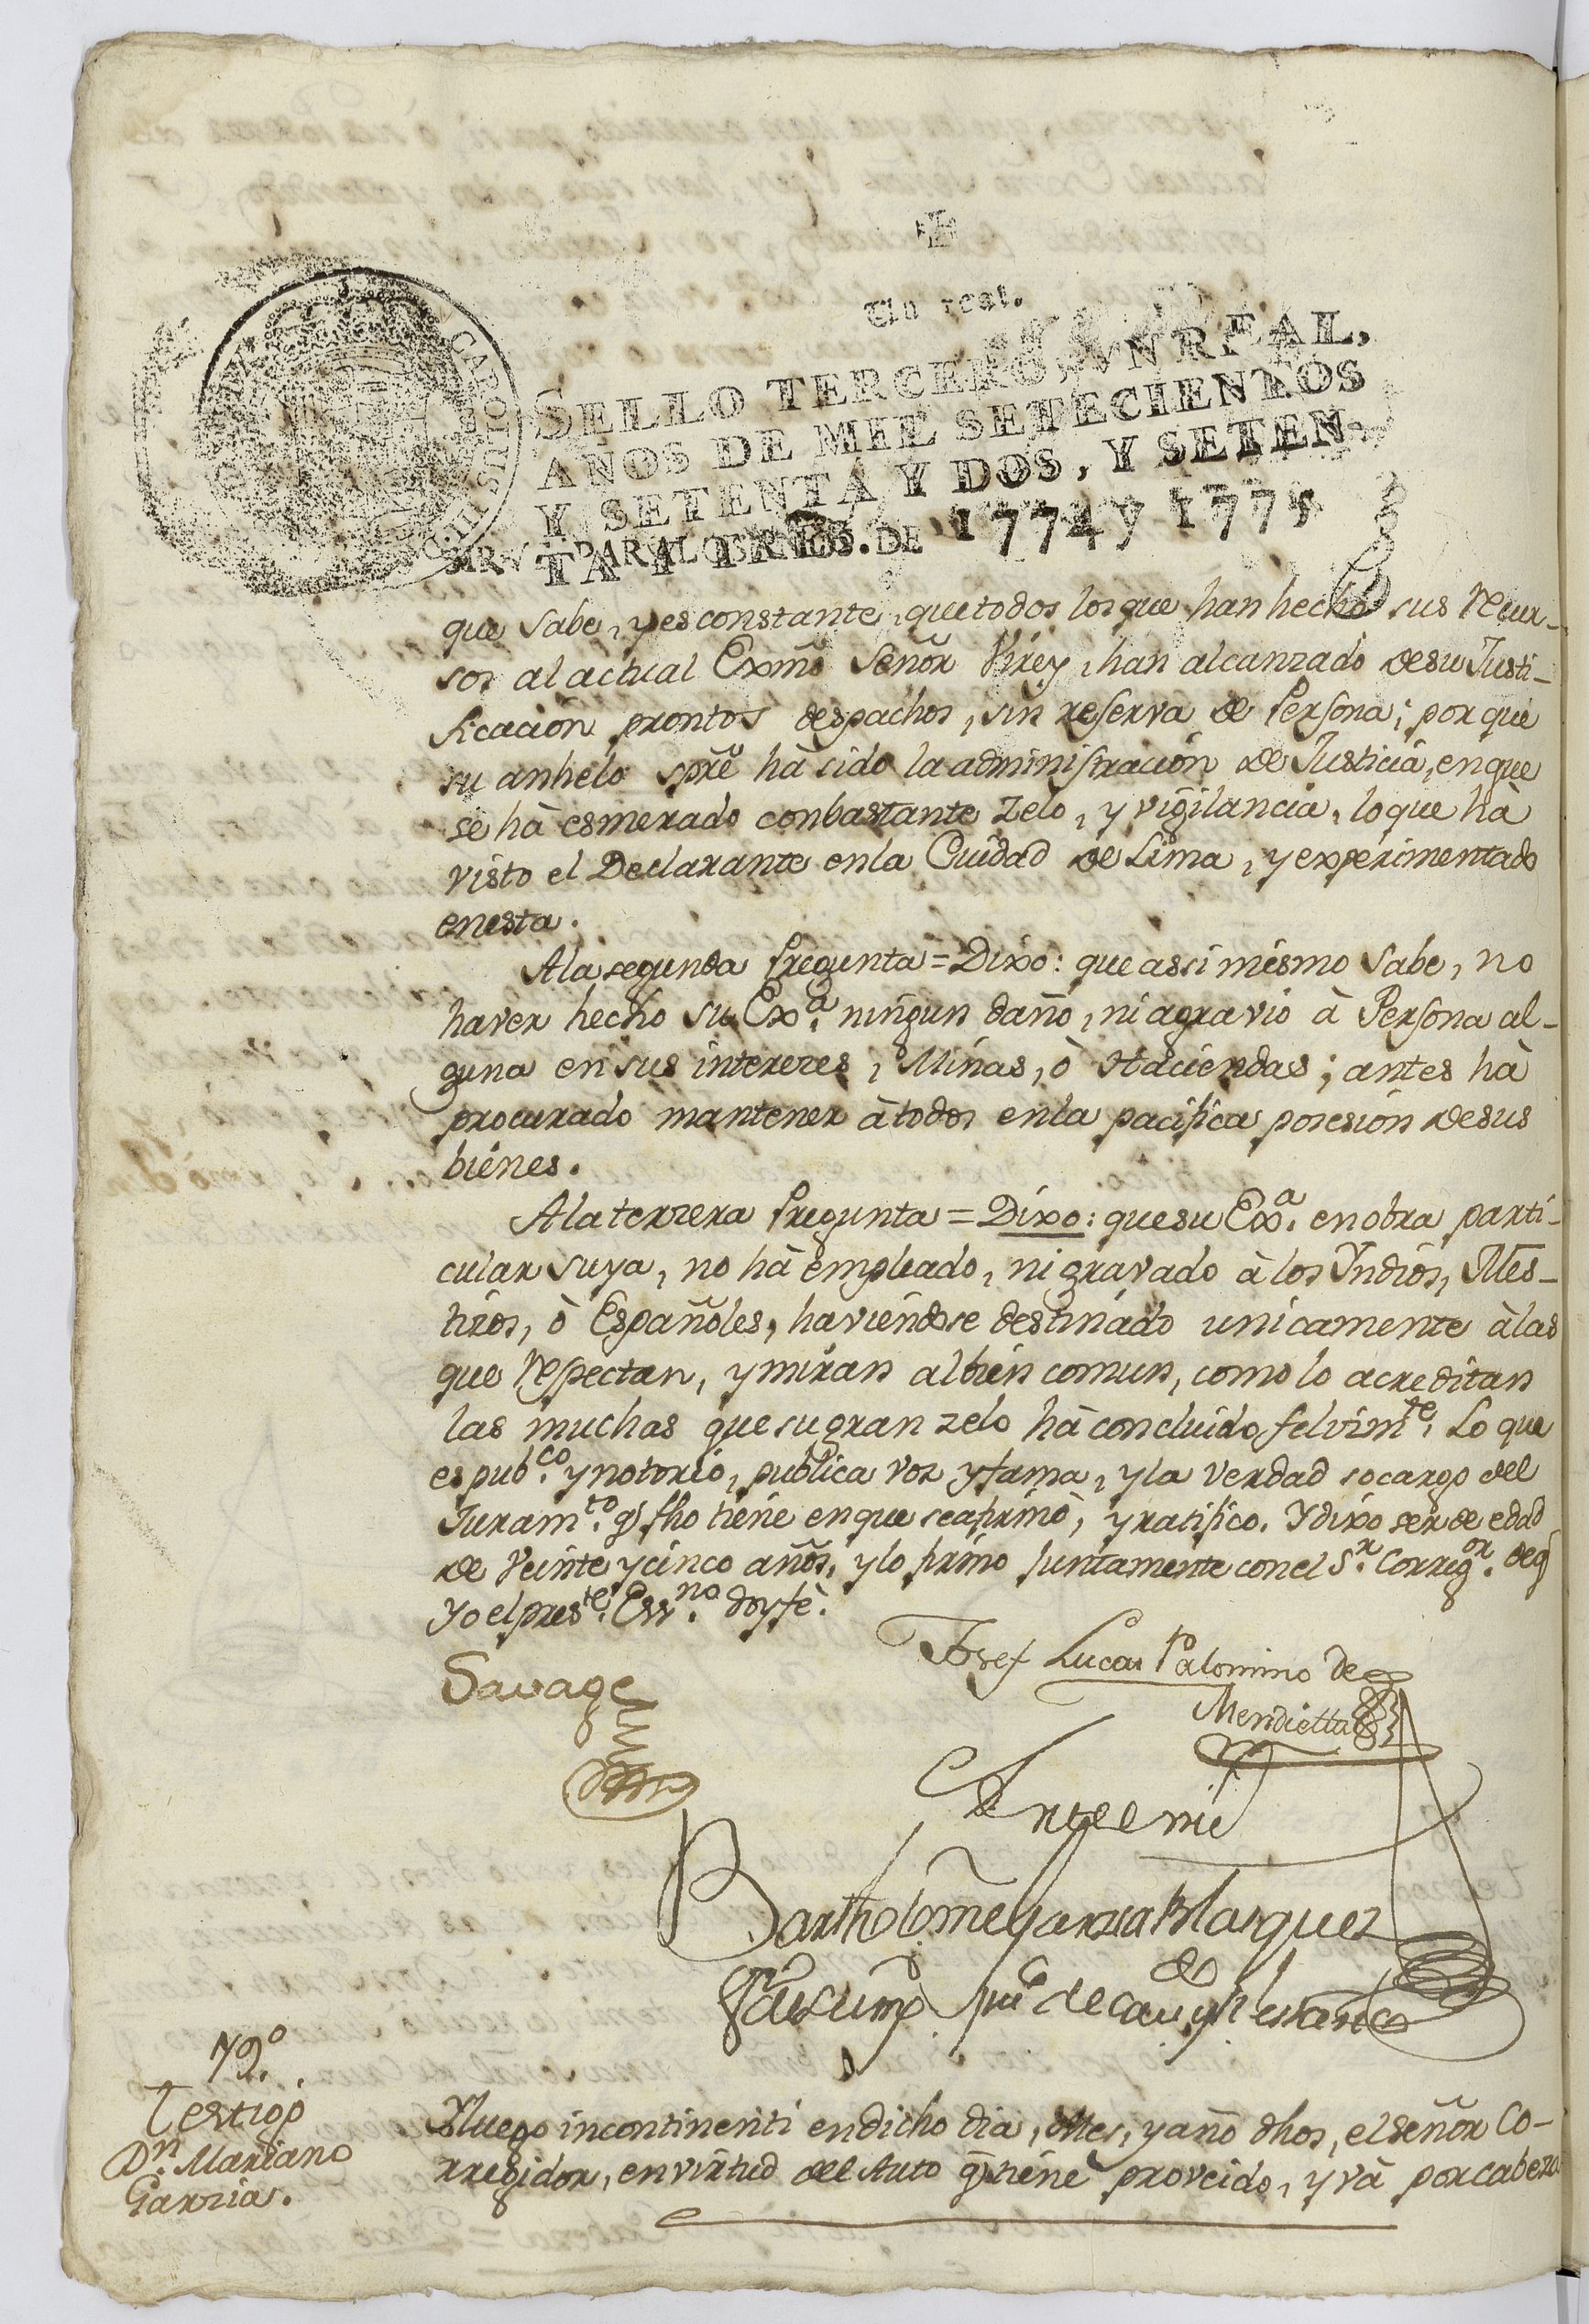 Un real.
SELLO TERCERO, VN REAL,
AÑOS DE MIL SETECIENTOS
Y SETENTA Y DOS, Y SETEN-
TA Y TRES.
SIRVA PARA LOS AÑOS DE 1774 y 1775
CAROLUS III
que Sabe, y es constante, que todos los que han hecho sus recur-
sos al actual Exmõ Señor Virey, han alcanzado de su Justi-
ficacion prontos despachos, sin reserva de Persona; por que
su anhelo sprẽ hà sido la administracion de Justicia, en que
se hà esmerado con bastante Zelo, y vigilancia, lo que hà
visto el Declarante en la Ciudad de Lima, y experimentado
en esta.
A la segunda Pregunta = Dixo: que assi mesmo Sabe, no
haver hecho su Exª. ningun daño, ni agravio à Persona al-
guna en sus intereses, Minas, ò Haciendas; antes hà
procurado mantener à todos en la pacifica posesion de sus
bienes.
A la terzera Pregunta = Dixo: que su Exª. en obra parti-
cular suya, no hà empleado, ni gravado à los Yndios, Mes-
tizos, ò Españoles, haviendose destinado unicamente à las
que respectan, y miran al bien comun, como lo acreditan
las muchas que su gran zelo hà concluido felizm.te Lo que
es pub.co y notorio, publica voz y fama, y la verdad so cargo del
Juram.to q̃ fho tiene en que se afirmò, y ratifico. Y dixo ser de edad
de Veinte y cinco años, y lo firmo juntamente con el S.r Correg.or de q̃
Yo el pres.te Ess.no doy fè.
Savage
Josef Lucas Palomino de
Mendietta
Ante mi
Bartholome Garzia Blasquez
79.º
Testigo
Dn. Mariano
Garzia.
Y luego incontinenti en dicho dia, Mes, y año dhos, el señor Co-
rregidor, en virtud del Auto q̃ tiene proveido, y và por cabeza